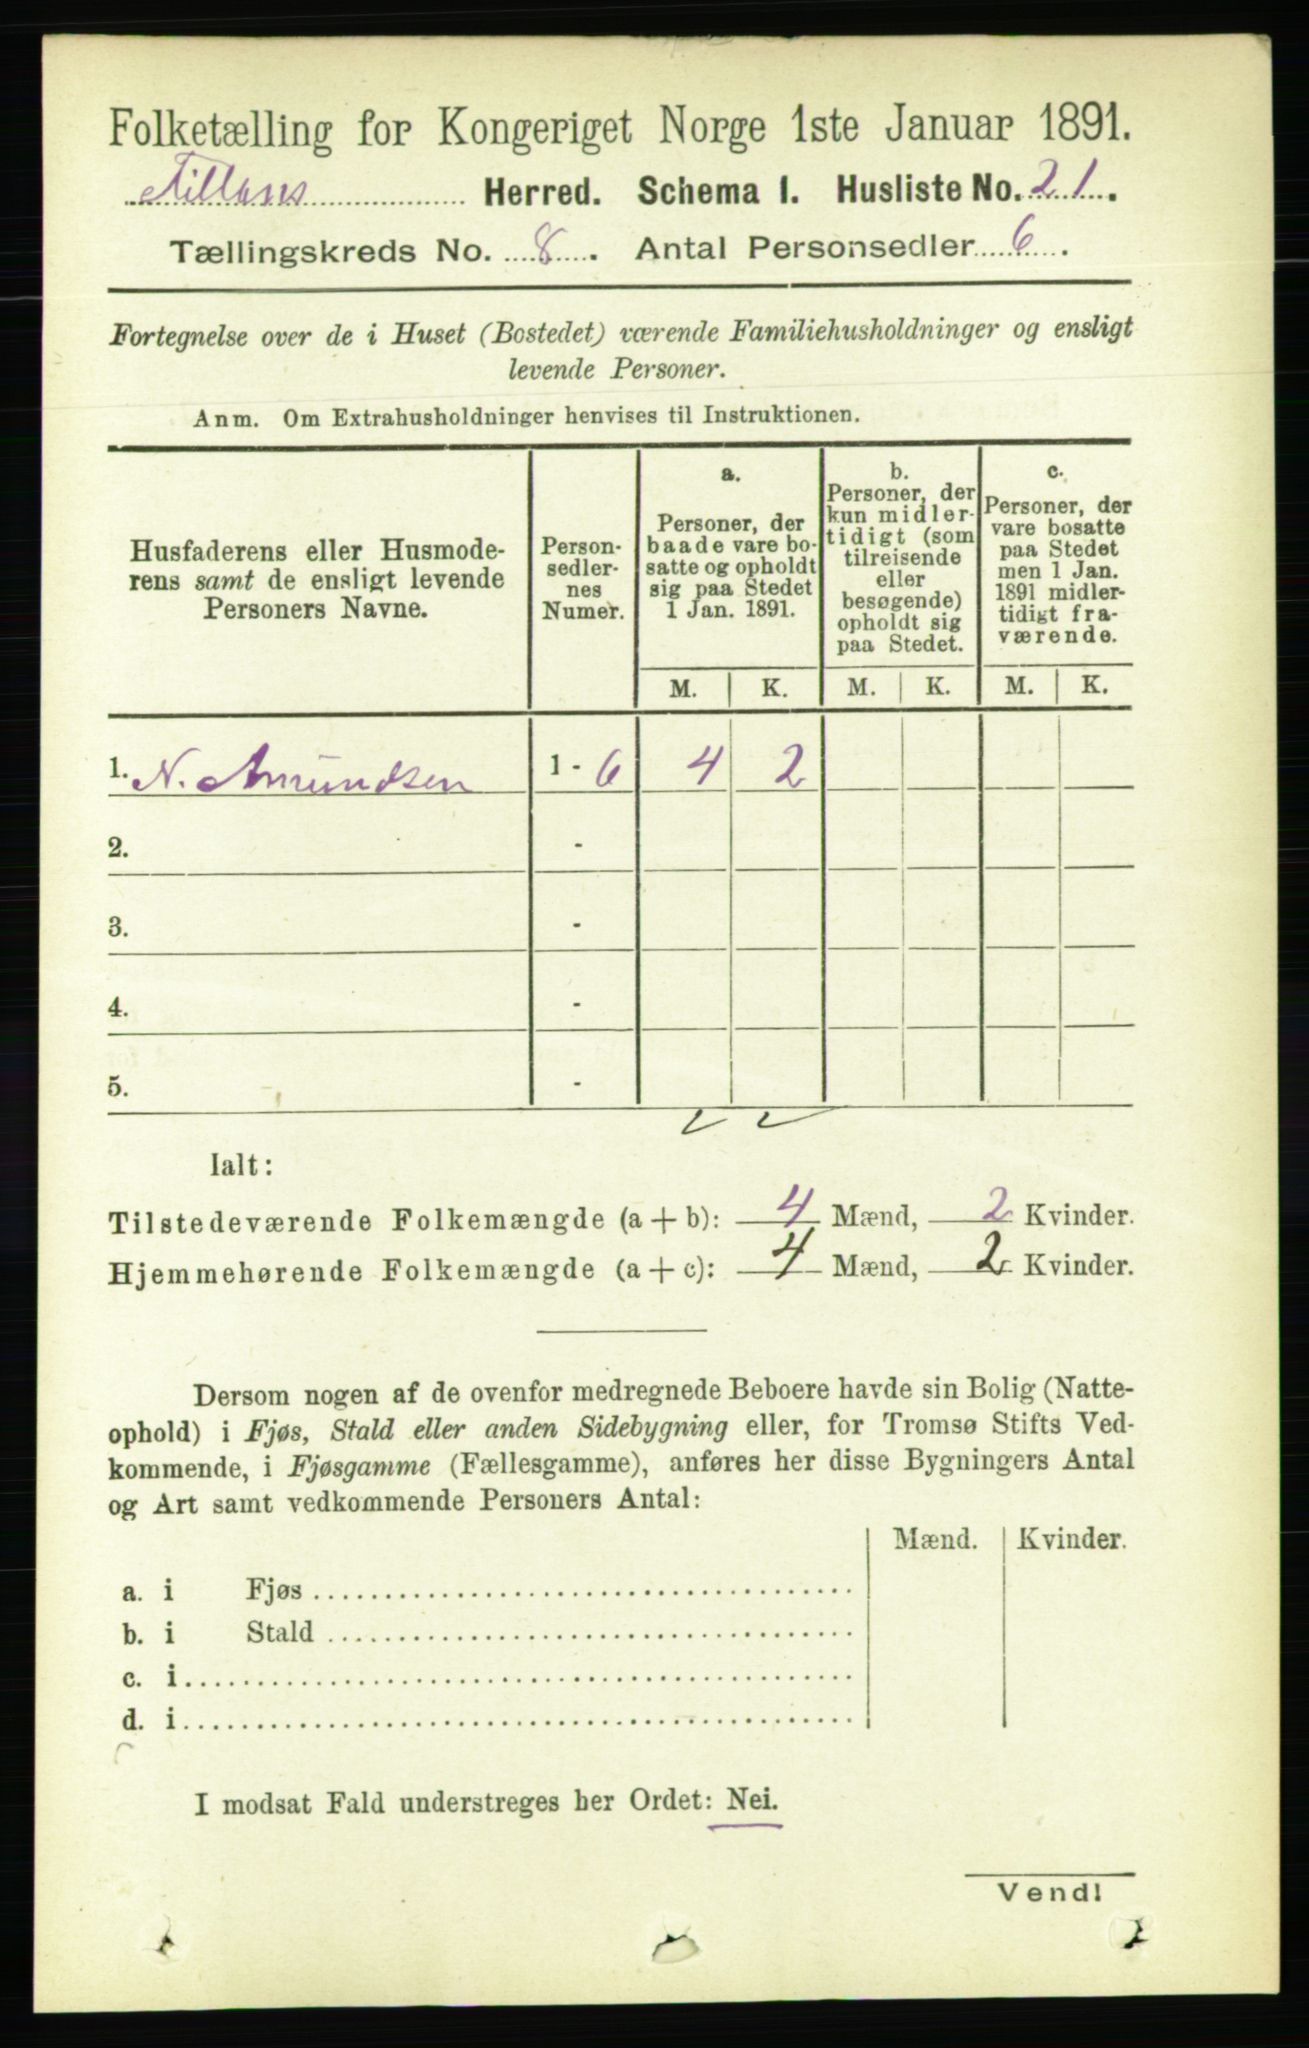 Folketælling for Kongeriget Norge 1ste Januar 1891.
Herred. Schema 1. Husliste No. 21.
Tællingskreds No. 8. Antal Personsedler 6.
Fortegnelse over de i Huset (Bostedet) værende Familiehusholdninger og ensligt
levende Personer.
Anm. Om Extrahusholdninger henvises til Instruktionen.
Husfaderens eller Husmode-
rens samt de ensligt levende
Personers Navne.
Person-
sedler-
nes
Numer.
a.
Personer, der
baade vare bo-
satte og opholdt
sig paa Stedet
1 Jan. 1891.
b.
Personer, der
kun midler-
tidigt (som
tilreisende
eller
besøgende)
opholdt sig
paa Stedet.
c.
Personer, der
vare bosatte
paa Stedet
men 1 Jan.
1891 midler-
tidigt fra-
værende.
M. K. M. K. M. K.
1. N. Amundsen 1 - 6 4 2
2. -
3. -
4. -
5. -
Ialt:
Tilstedeværende Folkemængde (a + b): 4 Mænd, 2 Kvinder.
Hjemmehørende Folkemængde (a + c): 4 Mænd, 2 Kvinder.
Dersom nogen af de ovenfor medregnede Beboere havde sin Bolig (Natte-
ophold) i Fjøs, Stald eller anden Sidebygning eller, for Tromsø Stifts Ved-
kommende, i Fjøsgamme (Fællesgamme), anføres her disse Bygningers Antal
og Art samt vedkommende Personers Antal:
Mænd. Kvinder.
a. i Fjøs
b. i Stald
c. i
d. i
I modsat Fald understreges her Ordet: Nei.
Vend!